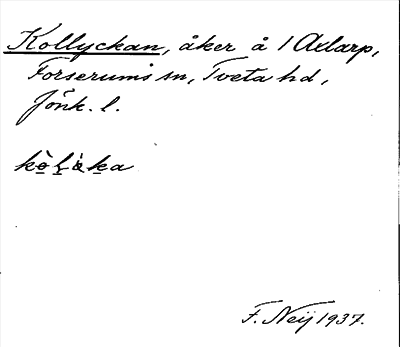 Kollyckan, åker å 1 Axlarp,
Forserums sn, Tveta hd,
Jönk. l.
F. Neij 1937.